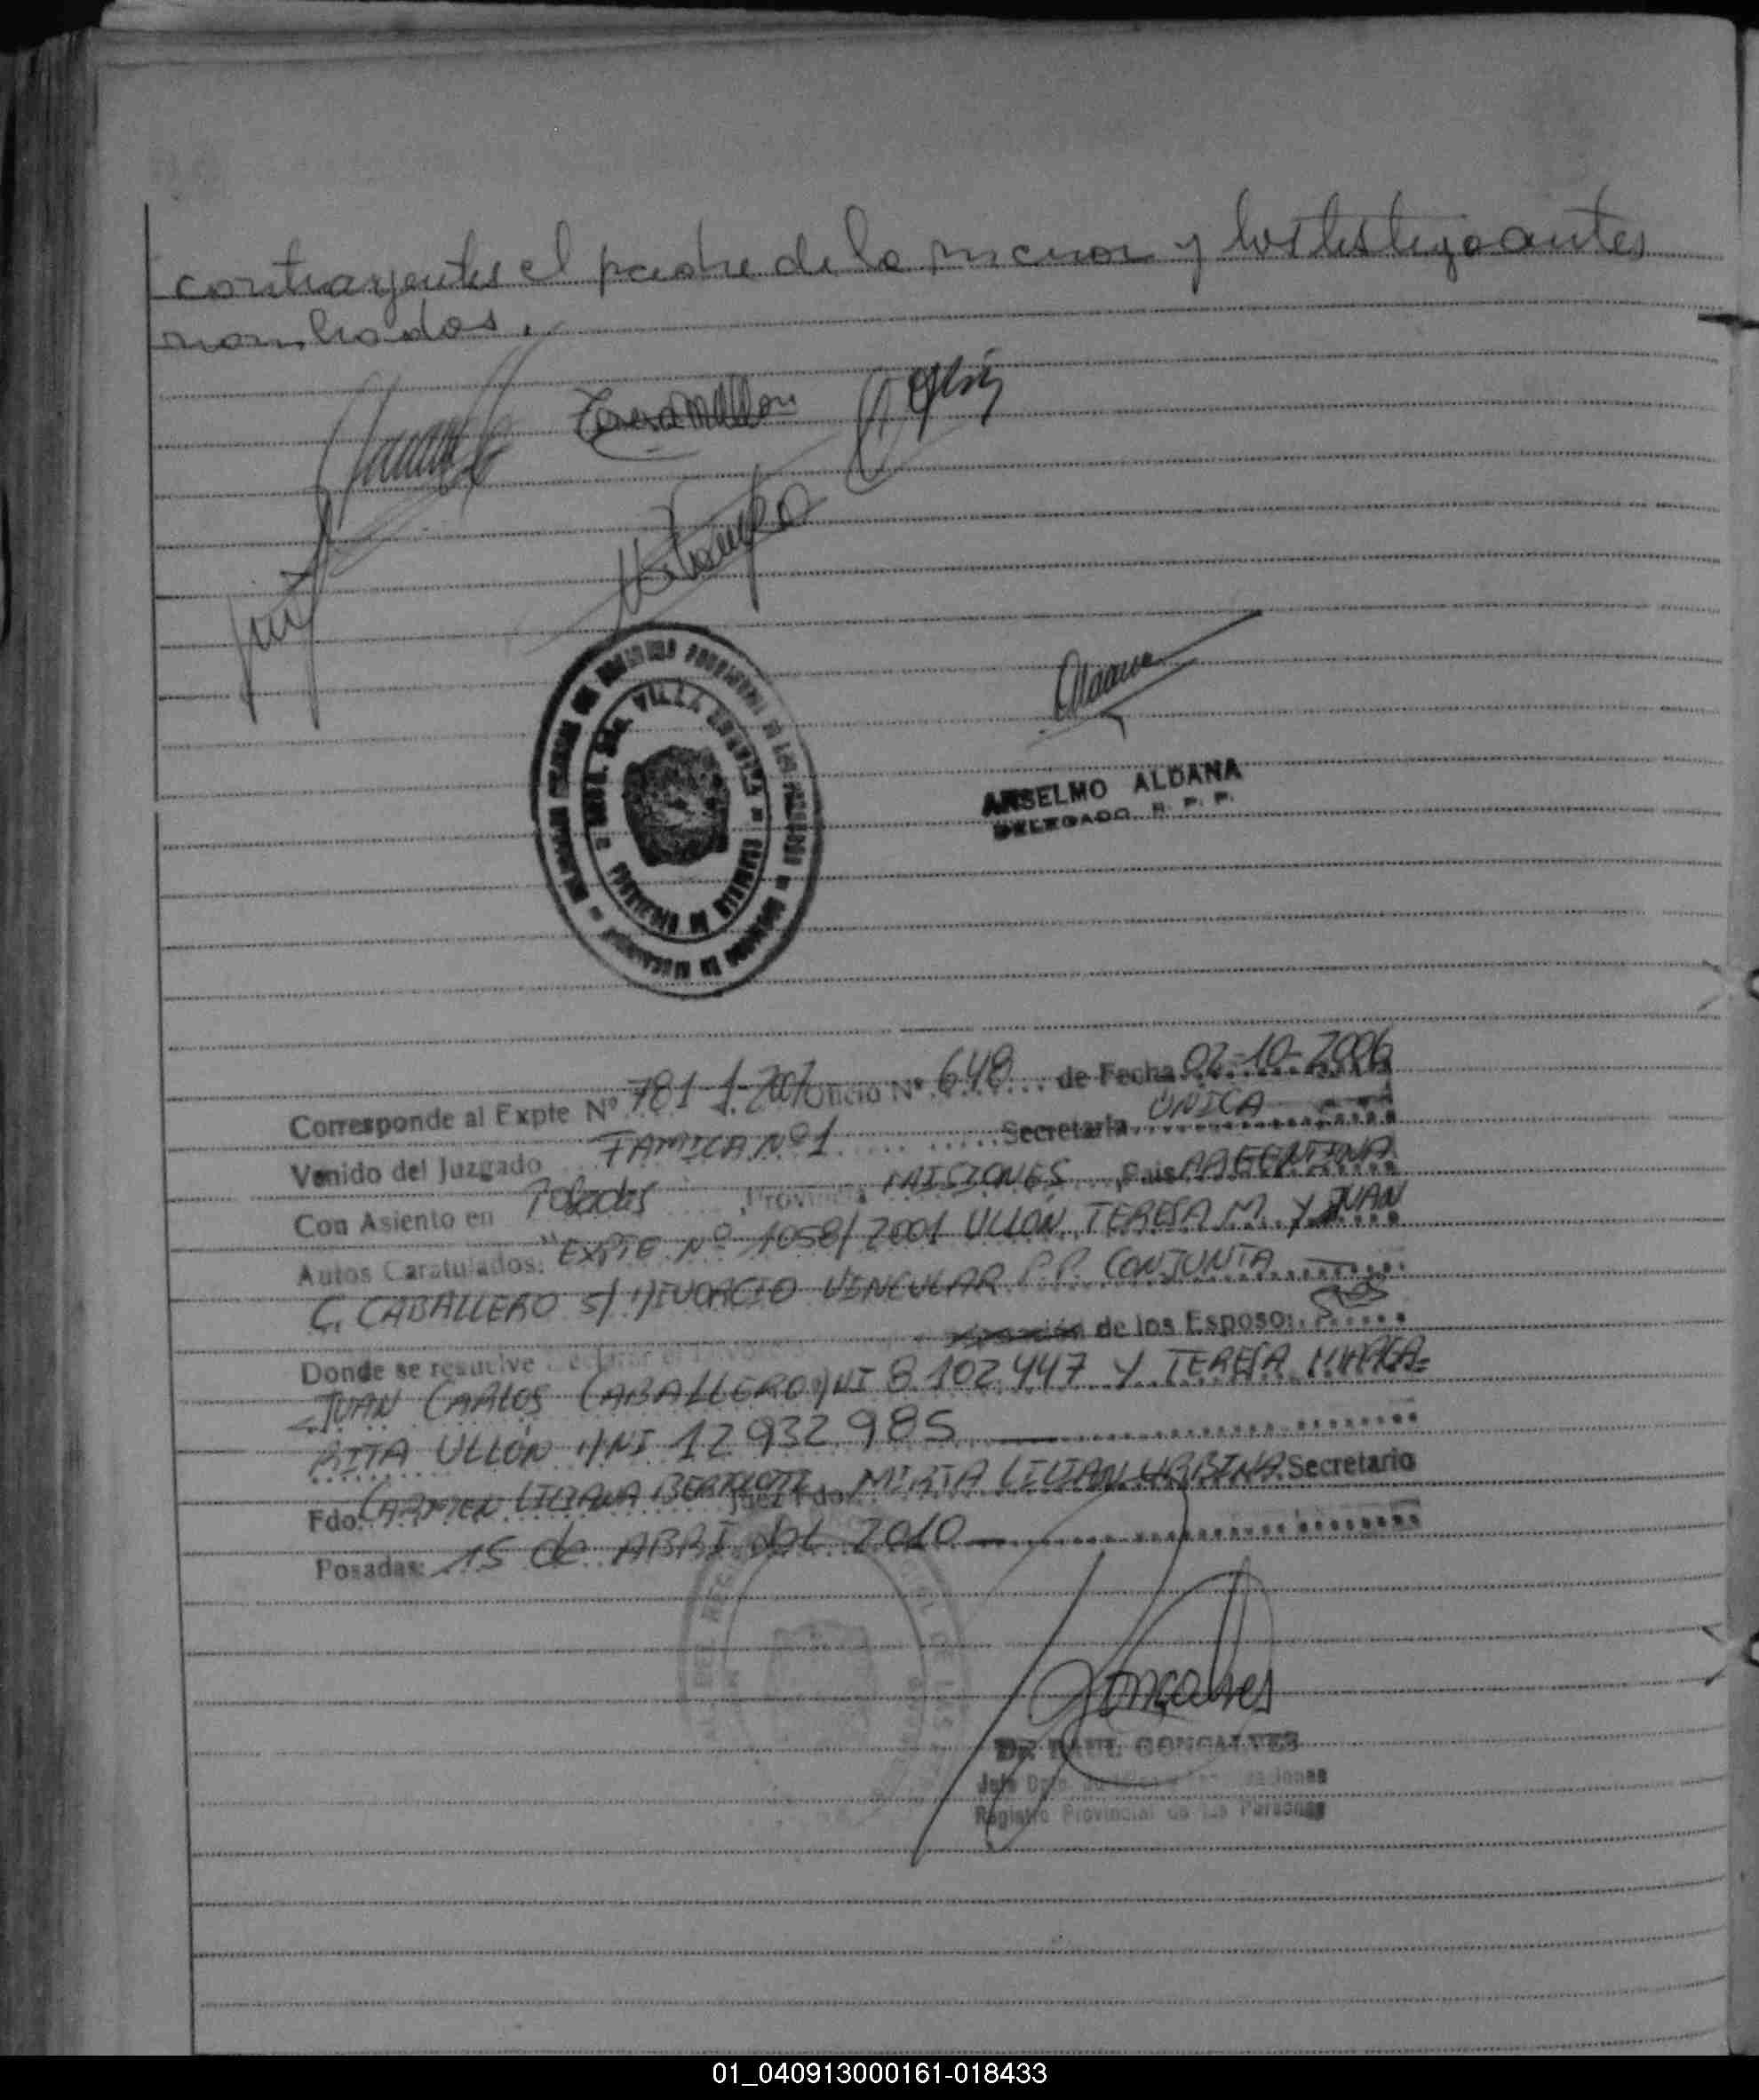 contrayentes el padre de la menor y los testigo antes
nombrados.
Teresa M Ullon
VILLA
ANSELMO ALDANA
DELEGADO R. P. P.
Corresponde al Expte Nº 781-1-2007 Oficio Nº 648 de Fecha 02-10-2006
Venido del Juzgado FAMILIA Nº 1 Secretaria UNICA
Con Asiento en Posadas Provincia MISIONES Pais ARGENTINA
Autos Caratulados: "EXPTE Nº 1058/2001 ULLON, TERESA M. Y JUAN
C. CABALLERO S/ DIVORCIO VINCULAR P.P. CONJUNTA
Donde se resuelve de los Esposo:
JUAN CARLOS CABALLERO DNI 8.102.447 Y TERESA MARGA-
RITA ULLÓN DNI 12.932.985
Fdo. CARMEN LILIANA Fdo. MIRTA LILIAN URBINA Secretario
Posadas: 15 de ABRI DOL 2010
Goncalves
Dr. RAUL GONCALVES
Registro Provincial de las Personas
01_040913000161-018433